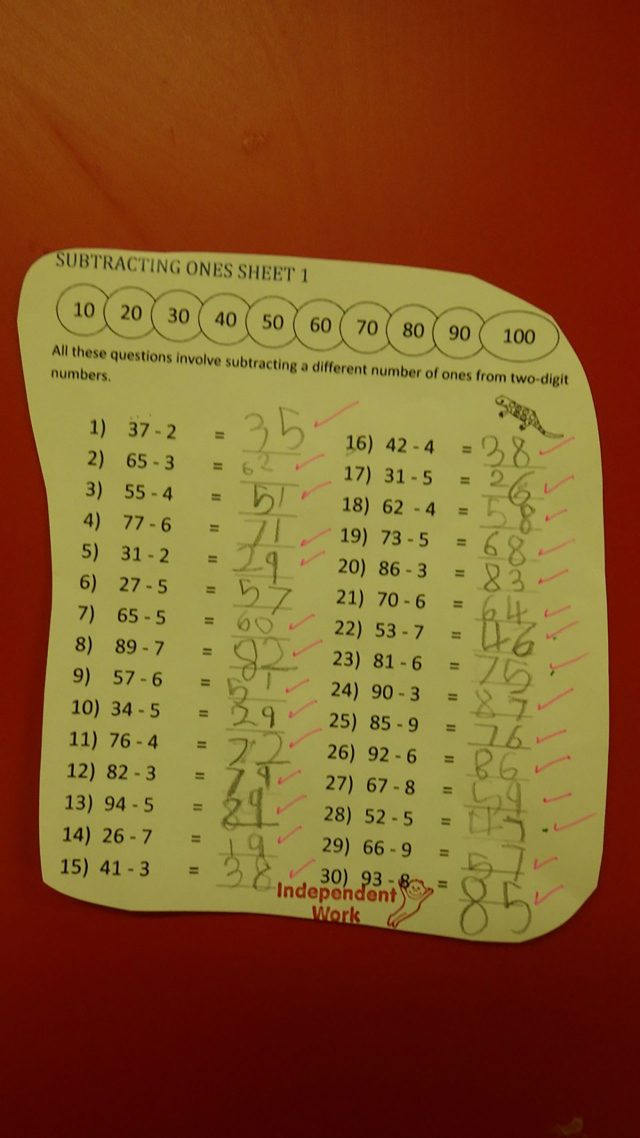 SUBTRACTING ONES SHEET 1
10 20 30 40 50 60 70 80 90 100
All these questions involve subtracting a different number of ones from two-digit
numbers.
1) 37 - 2 = 35
2) 65 - 3 = 62
3) 55 - 4 = 51
4) 77 - 6 = 71
5) 31 - 2 = 29
6) 27 - 5 = 57
7) 65 - 5 = 60
8) 89 - 7 = 82
9) 57 - 6 = 51
10) 34 - 5 = 29
11) 76 - 4 = 72
12) 82 - 3 = 79
13) 94 - 5 = 89
14) 26 - 7 = 19
15) 41 - 3 = 38
16) 42 - 4 = 38
17) 31 - 5 = 26
18) 62 - 4 = 58
19) 73 - 5 = 68
20) 86 - 3 = 83
21) 70 - 6 = 64
22) 53 - 7 = 46
23) 81 - 6 = 75
24) 90 - 3 = 87
25) 85 - 9 = 76
26) 92 - 6 = 86
27) 67 - 8 = 59
28) 52 - 5 = 47
29) 66 - 9 = 57
30) 93 - 8 = 85
Independent
Work